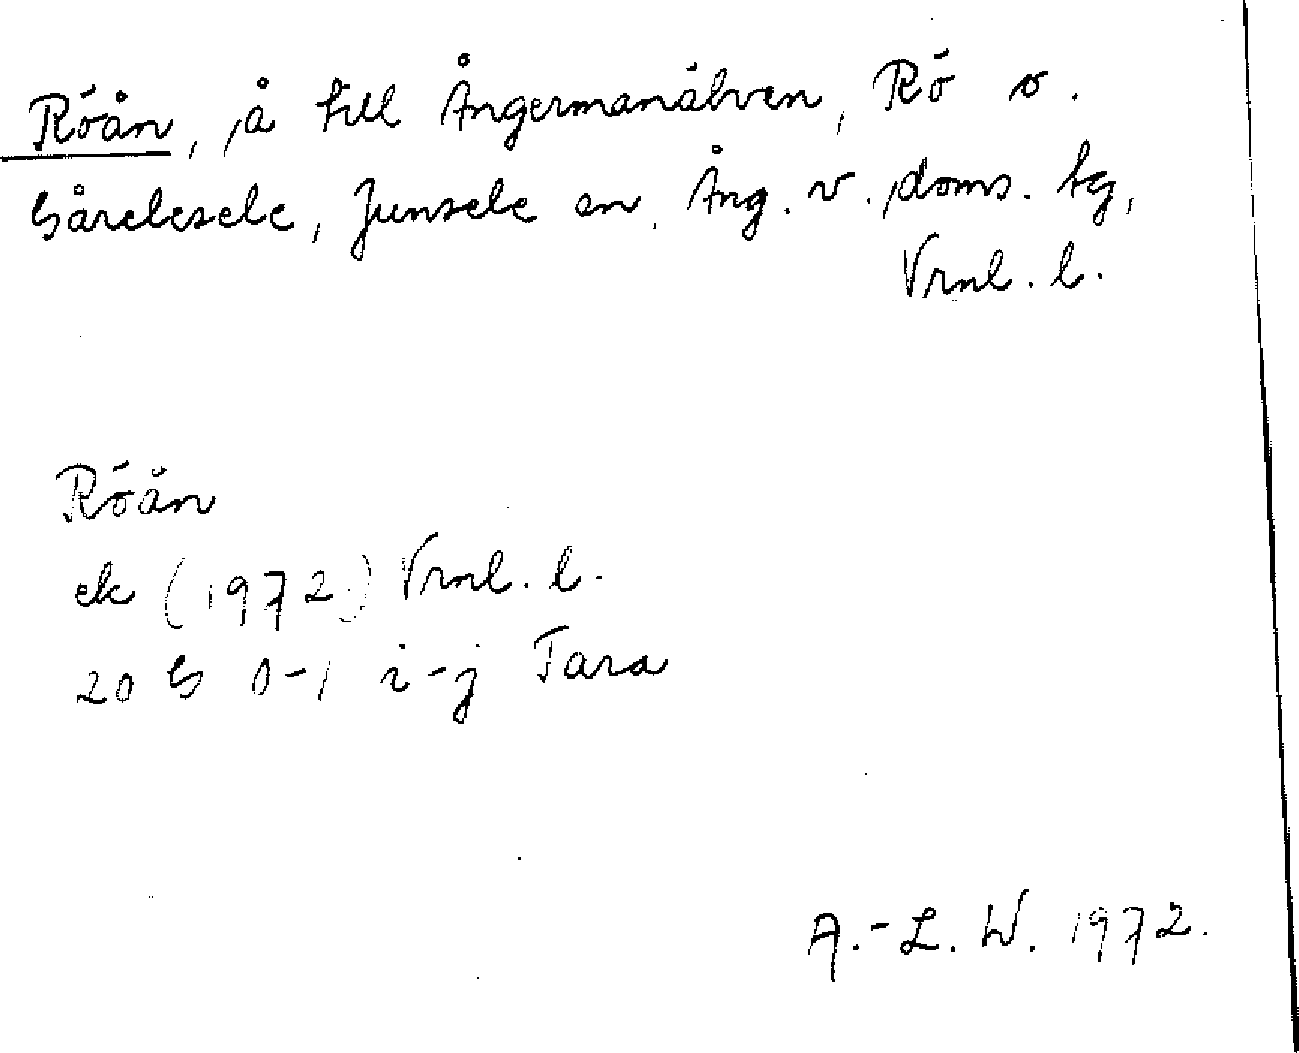 Röån, å till Ångermanälven, Rö o.
Gårelesele, Junsele sn, Ång. v. doms. tg,
Vrnl. l.
Röån
ek (1972) Vrnl. l.
20 G 0-1 i-j Tara
A.-L. W. 1972.